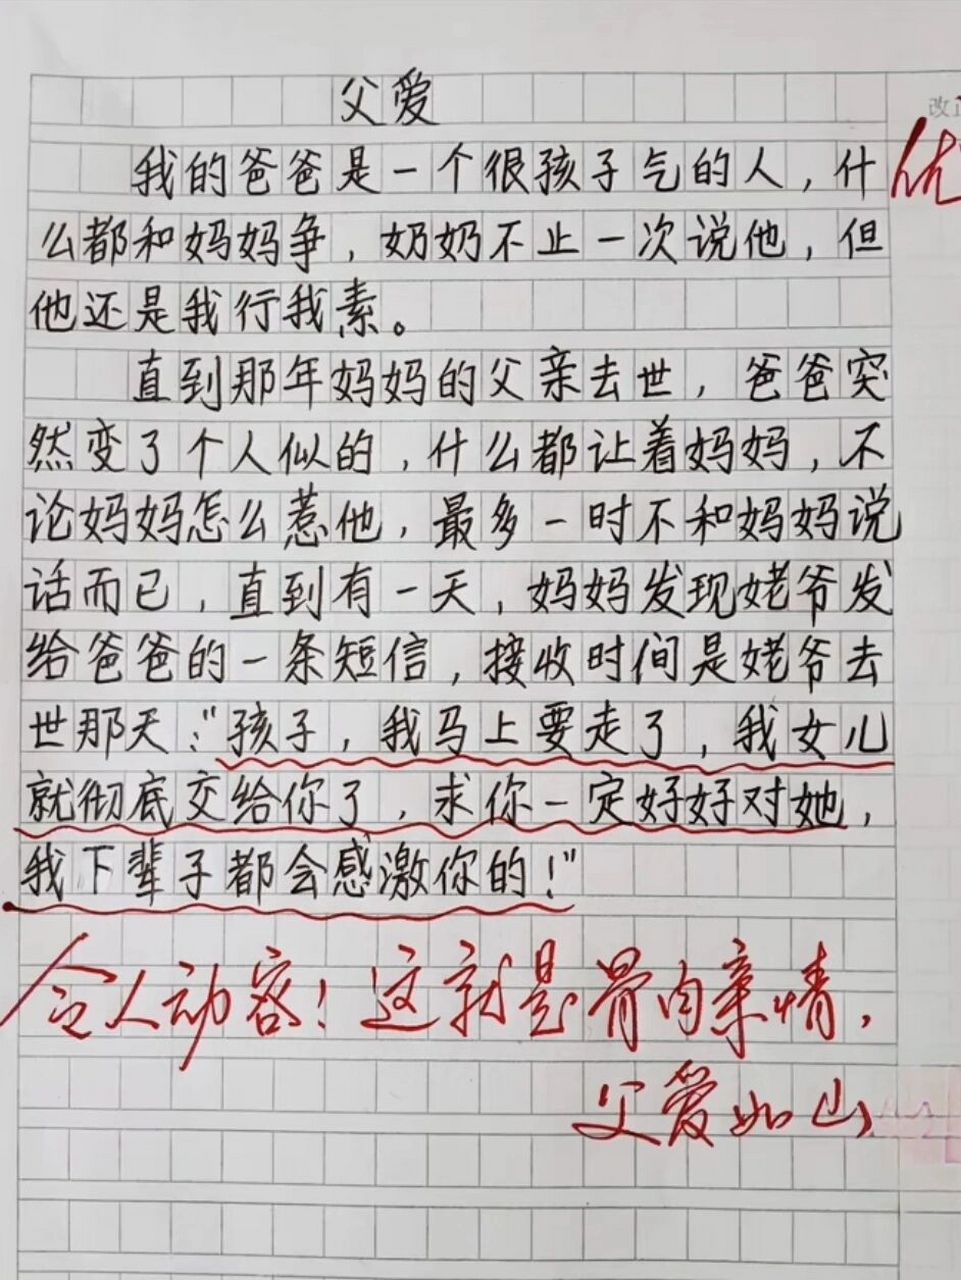 父爱
我的爸爸是一个很孩子气的人，什
么都和妈妈争，奶奶不止一次说他，但
他还是我行我素。
直到那年妈妈的父亲去世，爸爸突
然变了个人似的，什么都让着妈妈，不
论妈妈怎么惹他，最多一时不和妈妈说
话而已，直到有一天，妈妈发现姥爷发
给爸爸的一条短信，接收时间是姥爷去
世那天："孩子，我马上要走了，我女儿
就彻底交给你了，求你一定好好对她，
我下辈子都会感激你的！"
改正
优
令人动容！这就是骨肉亲情，
父爱如山